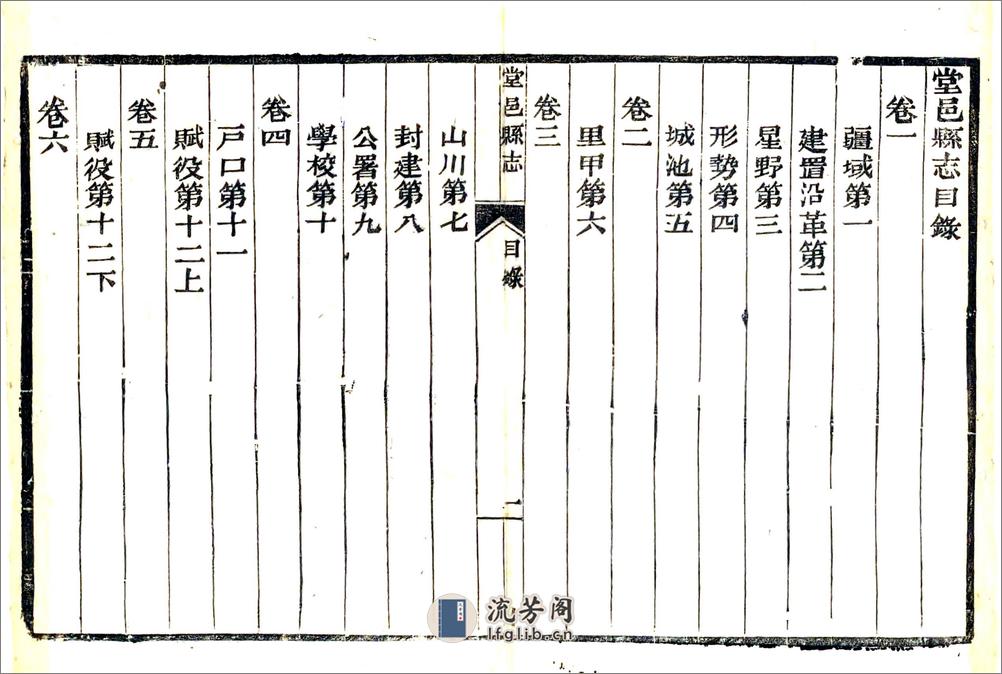 堂邑縣志目錄
卷一
疆域第一
建置沿革第二
星野第三
形勢第四
城池第五
卷二
里甲第六
卷三
堂邑縣志
目錄
一
山川第七
封建第八
公署第九
學校第十
卷四
戸口第十一
賦役第十二上
卷五
賦役第十二下
卷六
流芳阁
lfglib.cn